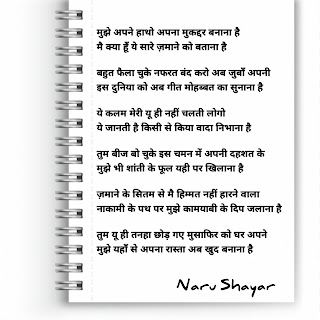 मुझे अपने हाथो अपना मुकद्दर बनाना है
मै क्या हूँ ये सारे ज़माने को बताना है
बहुत फैला चुके नफरत बंद करो अब जुबाँ अपनी
इस दुनिया को अब गीत मोहब्बत का सुनाना है
ये कलम मेरी यू ही नहीं चलती लोगो
ये जानती है किसी से किया वादा निभाना है
तुम बीज बो चुके इस चमन में अपनी दहशत के
मुझे भी शांती के फूल यही पर खिलाना है
ज़माने के सितम से मै हिम्मत नहीं हारने वाला
नाकामी के पथ पर मुझे कामयाबी के दिप जलाना है
तुम यू ही तनहा छोड़ गए मुसाफिर को घर अपने
मुझे यहाँ से अपना रास्ता अब खुद बनाना है
Naru Shayar